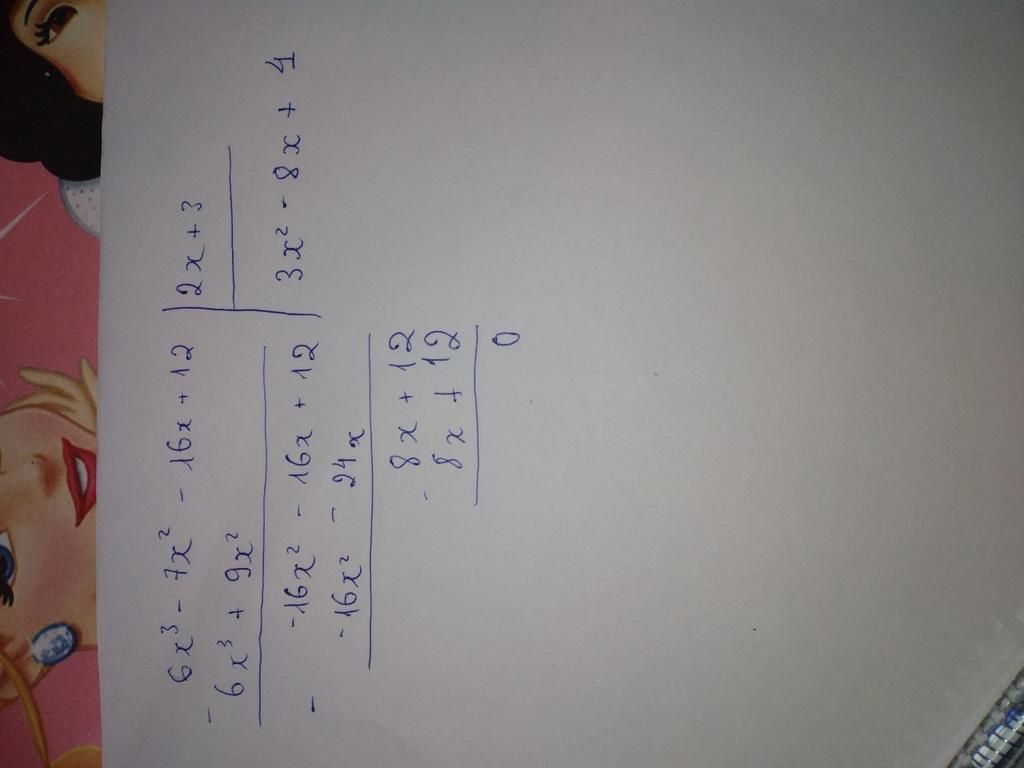 6x³ - 7x² - 16x + 12 | 2x + 3
- 6x³ + 9x² 3x² - 8x + 4
-16x² - 16x + 12
- -16x² - 24x
8x + 12
- 8x + 12
0